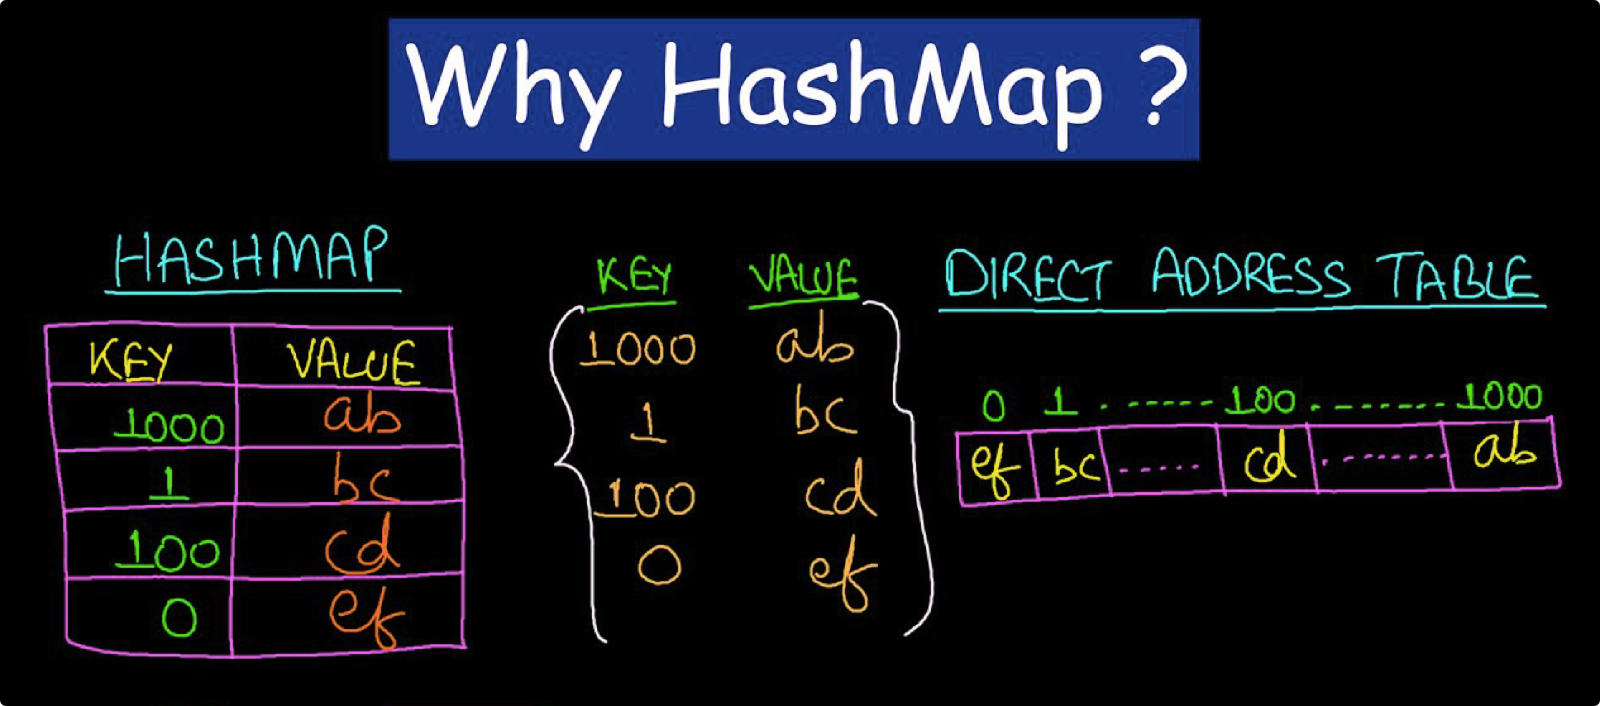 Why HashMap ?
HASHMAP
KEY VALUE
1000 ab
1 bc
100 cd
0 ef
KEY VALUE
1000 ab
1 bc
100 cd
0 ef
DIRECT ADDRESS TABLE
0 1 . ------- 100 . -------- 1000
ef bc ...... cd ......... ab